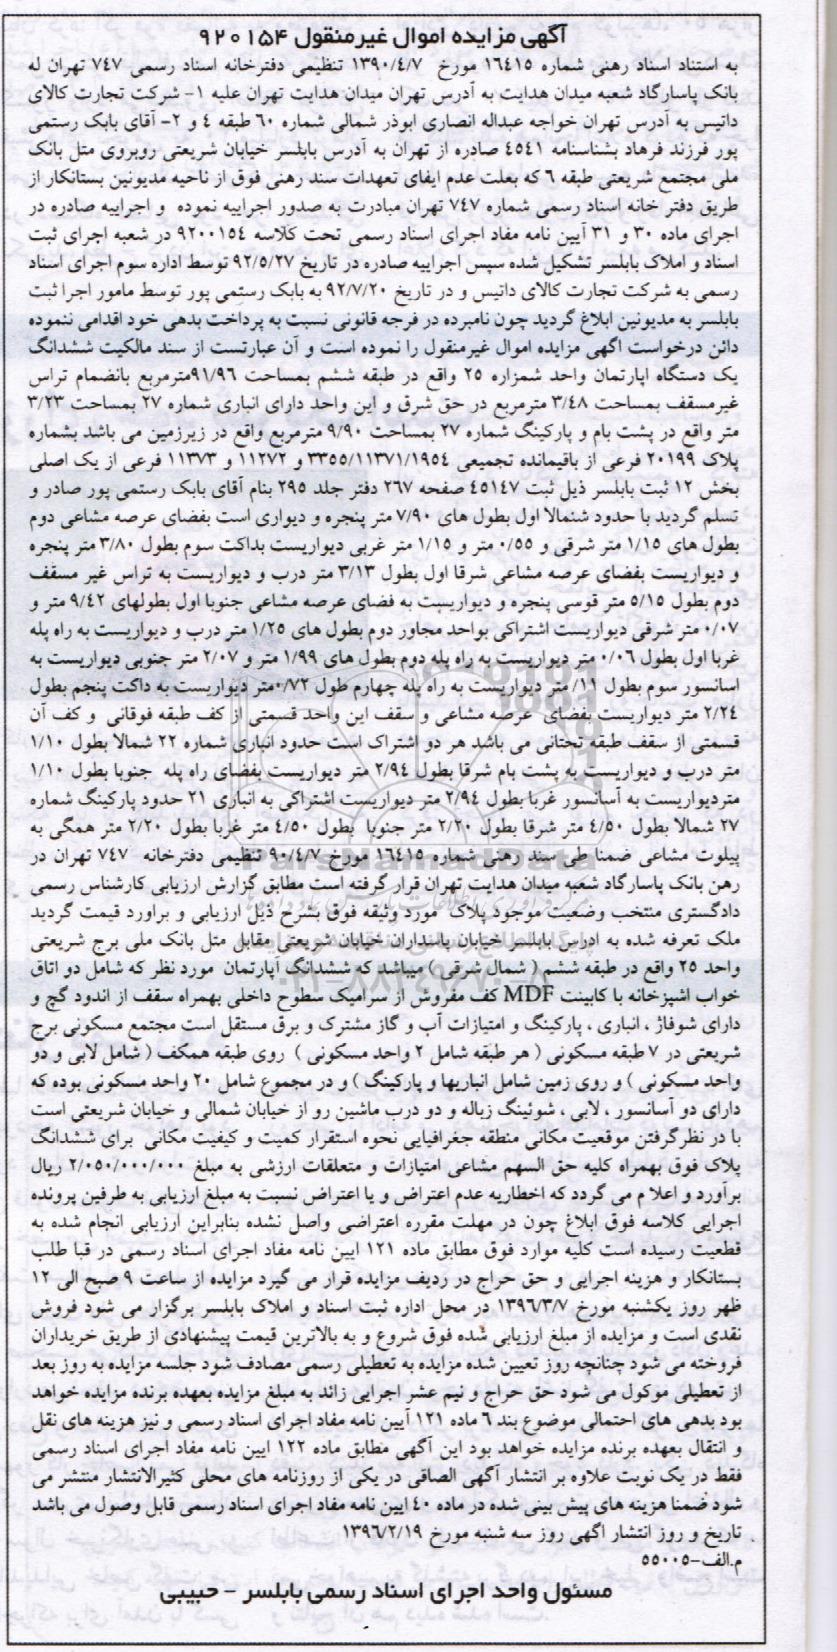 آگهی مزایده اموال غیرمنقول ۹۲۰۱۵۴
به استناد اسناد رهنی شماره ۱۶٤۱۵ مورخ ۱۳۹۰/٤/۷ تنظیمی دفترخانه اسناد رسمی ۷٤۷ تهران له
بانک پاسارگاد شعبه میدان هدایت به آدرس تهران میدان هدایت تهران علیه ۱- شرکت تجارت کالای
داتیس به آدرس تهران خواجه عبداله انصاری ابوذر شمالی شماره ۶۰ طبقه ٤ و ۲- آقای بابک رستمی
پور فرزند فرهاد بشناسنامه ٤٥٤۱ صادره از تهران به آدرس بابلسر خیابان شریعتی روبروی متل بانک
ملی مجتمع شریعتی طبقه ۶ که بعلت عدم ایفای تعهدات سند رهنی فوق از ناحیه مدیونین بستانکار از
طریق دفتر خانه اسناد رسمی شماره ۷٤۷ تهران مبادرت به صدور اجراییه نموده و اجراییه صادره در
اجرای ماده ۳۰ و ۳۱ آیین نامه مفاد اجرای اسناد رسمی تحت کلاسه ۹۲۰۰۱۵٤ در شعبه اجرای ثبت
اسناد و املاک بابلسر تشکیل شده سپس اجراییه صادره در تاریخ ۹۲/۵/۲۷ توسط اداره سوم اجرای اسناد
رسمی به شرکت تجارت کالای داتیس و در تاریخ ۹۲/۷/۲۰ به بابک رستمی پور توسط مامور اجرا ثبت
بابلسر به مدیونین ابلاغ گردید چون نامبرده در فرجه قانونی نسبت به پرداخت بدهی خود اقدامی ننموده
دائن درخواست اگهی مزایده اموال غیرمنقول را نموده است و آن عبارتست از سند مالکیت ششدانگ
یک دستگاه اپارتمان واحد شمزاره ۲۵ واقع در طبقه ششم بمساحت ۹۱/۹۶مترمربع بانضمام تراس
غیرمسقف بمساحت ۳/٤۸ مترمربع در حق شرق و این واحد دارای انباری شماره ۲۷ بمساحت ۳/۲۳
متر واقع در پشت بام و پارکینگ شماره ۲۷ بمساحت ۹/۹۰ مترمربع واقع در زیرزمین می باشد بشماره
پلاک ۲۰۱۹۹ فرعی از باقیمانده تجمیعی ۳۳۵۵/۱۱۳۷۱/۱۹۵٤ و ۱۱۲۷۲ و ۱۱۳۷۳ فرعی از یک اصلی
بخش ۱۲ ثبت بابلسر ذیل ثبت ٤۵۱٤۷ صفحه ۲۶۷ دفتر جلد ۲۹۵ بنام آقای بابک رستمی پور صادر و
تسلم گردید با حدود شنمالا اول بطول های ۷/۹۰ متر پنجره و دیواری است بفضای عرصه مشاعی دوم
بطول های ۱/۱۵ متر شرقی و ۰/۵۵ متر و ۱/۱۵ متر غربی دیواریست بداکت سوم بطول ۳/۸۰ متر پنجره
و دیواریست بفضای عرصه مشاعی شرقا اول بطول ۳/۱۳ متر درب و دیواریست به تراس غیر مسقف
دوم بطول ۵/۱۵ متر قوسی پنجره و دیواریست به فضای عرصه مشاعی جنوبا اول بطولهای ۹/٤۲ متر و
۰/۰۷ متر شرقی دیواریست اشتراکی بواحد مجاور دوم بطول های ۱/۲۵ متر درب و دیواریست به راه پله
غربا اول بطول ۰/۰۶ متر دیواریست به راه پله دوم بطول های ۱/۹۹ متر و ۲/۰۷ متر جنوبی دیواریست به
اسانسور سوم بطول ۱۱/ متر دیواریست به راه پله چهارم طول ۰/۷۲متر دیواریست به داکت پنجم بطول
۲/۲٤ متر دیواریست بفضای عرصه مشاعی و سقف این واحد قسمتی از کف طبقه فوقانی و کف آن
قسمتی از سقف طبقه تحتانی می باشد هر دو اشتراک است حدود انباری شماره ۲۲ شمالا بطول ۱/۱۰
متر درب و دیواریست به پشت بام شرقا بطول ۲/۹٤ متر دیواریست بفضای راه پله جنوبا بطول ۱/۱۰
متردیواریست به آسانسور غربا بطول ۲/۹٤ متر دیواریست اشتراکی به انباری ۲۱ حدود پارکینگ شماره
۲۷ شمالا بطول ٤/۵۰ متر شرقا بطول ۲/۲۰ متر جنوبا بطول ٤/۵۰ متر غربا بطول ۲/۲۰ متر همگی به
پیلوت مشاعی ضمنا طی سند رهنی شماره ۱۶٤۱۵ مورخ ۹۰/٤/۷ تنظیمی دفترخانه ۷٤۷ تهران در
رهن بانک پاسارگاد شعبه میدان هدایت تهران قرار گرفته است مطابق گزارش ارزیابی کارشناس رسمی
دادگستری منتخب وضعیت موجود پلاک مورد وثیقه فوق بشرح ذیل ارزیابی و براورد قیمت گردید
ملک تعرفه شده به ادرس بابلسر خیابان پاسداران خیابان شریعتی مقابل متل بانک ملی برج شریعتی
واحد ۲۵ واقع در طبقه ششم ( شمال شرقی ) میباشد که ششدانگ آپارتمان مورد نظر که شامل دو اتاق
خواب اشپزخانه با کابینت MDF کف مفروش از سرامیک سطوح داخلی بهمراه سقف از اندود گچ و
دارای شوفاژ ، انباری ، پارکینگ و امتیازات آب و گاز مشترک و برق مستقل است مجتمع مسکونی برج
شریعتی در ۷ طبقه مسکونی ( هر طبقه شامل ۲ واحد مسکونی ) روی طبقه همکف ( شامل لابی و دو
واحد مسکونی ) و روی زمین شامل انباریها و پارکینگ ) و در مجموع شامل ۲۰ واحد مسکونی بوده که
دارای دو آسانسور ، لابی ، شوئینگ زباله و دو درب ماشین رو از خیابان شمالی و خیابان شریعتی است
با در نظرگرفتن موقعیت مکانی منطقه جغرافیایی نحوه استقرار کمیت و کیفیت مکانی برای ششدانگ
پلاک فوق بهمراه کلیه حق السهم مشاعی امتیازات و متعلقات ارزشی به مبلغ ۲/۰۵۰/۰۰۰/۰۰۰ ریال
برآورد و اعلام می گردد که اخطاریه عدم اعتراض و یا اعتراض نسبت به مبلغ ارزیابی به طرفین پرونده
اجرایی کلاسه فوق ابلاغ چون در مهلت مقرره اعتراضی واصل نشده بنابراین ارزیابی انجام شده به
قطعیت رسیده است کلیه موارد فوق مطابق ماده ۱۲۱ ایین نامه مفاد اجرای اسناد رسمی در قبا طلب
بستانکار و هزینه اجرایی و حق حراج در ردیف مزایده قرار می گیرد مزایده از ساعت ۹ صبح الی ۱۲
ظهر روز یکشنبه مورخ ۱۳۹۶/۳/۷ در محل اداره ثبت اسناد و املاک بابلسر برگزار می شود فروش
نقدی است و مزایده از مبلغ ارزیابی شده فوق شروع و به بالاترین قیمت پیشنهادی از طریق خریداران
فروخته می شود چنانچه روز تعیین شده مزایده به تعطیلی رسمی مصادف شود جلسه مزایده به روز بعد
از تعطیلی موکول می شود حق حراج و نیم عشر اجرایی زائد به مبلغ مزایده بعهده برنده مزایده خواهد
بود بدهی های احتمالی موضوع بند ۶ ماده ۱۲۱ آیین نامه مفاد اجرای اسناد رسمی و نیز هزینه های نقل
و انتقال بعهده برنده مزایده خواهد بود این آگهی مطابق ماده ۱۲۲ ایین نامه مفاد اجرای اسناد رسمی
فقط در یک نوبت علاوه بر انتشار آگهی الصاقی در یکی از روزنامه های محلی کثیرالانتشار منتشر می
شود ضمنا هزینه های پیش بینی شده در ماده ٤۰ ایین نامه مفاد اجرای اسناد رسمی قابل وصول می باشد
تاریخ و روز انتشار اگهی روز سه شنبه مورخ ۱۳۹۶/۲/۱۹
م.الف-۵۵۰۰۵
مسئول واحد اجرای اسناد رسمی بابلسر - حبیبی
ParsNamadData